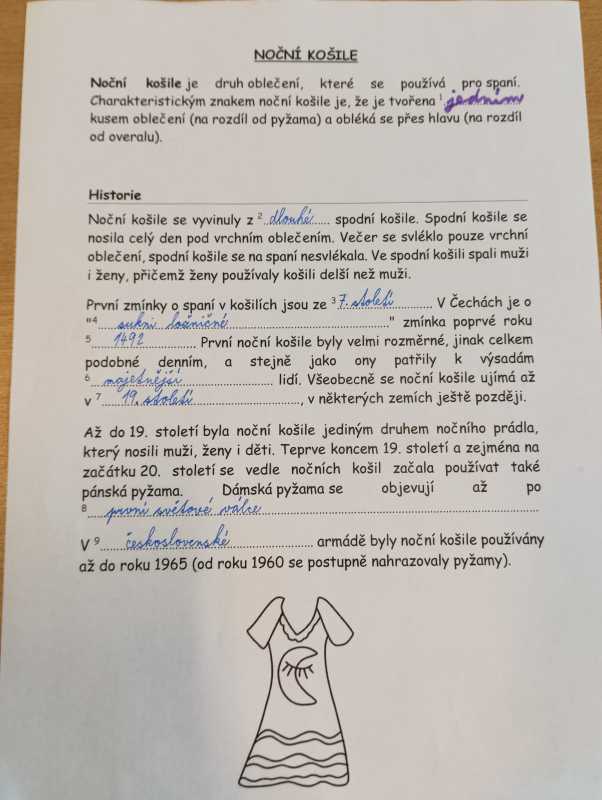 NOČNÍ KOŠILE
Noční košile je druh oblečení, které se používá pro spaní.
Charakteristickým znakem noční košile je, že je tvořena ¹ jedním
kusem oblečení (na rozdíl od pyžama) a obléká se přes hlavu (na rozdíl
od overalu).
Historie
Noční košile se vyvinuly z ² dlouhé spodní košile. Spodní košile se
nosila celý den pod vrchním oblečením. Večer se svléklo pouze vrchní
oblečení, spodní košile se na spaní nesvlékala. Ve spodní košili spali muži
i ženy, přičemž ženy používaly košili delší než muži.
První zmínky o spaní v košilích jsou ze ³ 7. století. V Čechách je o
"⁴ sukni ložničné" zmínka poprvé roku
⁵ 1492. První noční košile byly velmi rozměrné, jinak celkem
podobné denním, a stejně jako ony patřily k výsadám
⁶ majetnější lidí. Všeobecně se noční košile ujímá až
v ⁷ 19. století, v některých zemích ještě později.
Až do 19. století byla noční košile jediným druhem nočního prádla,
který nosili muži, ženy i děti. Teprve koncem 19. století a zejména na
začátku 20. století se vedle nočních košil začala používat také
pánská pyžama. Dámská pyžama se objevují až po
⁸ první světové válce
V ⁹ československé armádě byly noční košile používány
až do roku 1965 (od roku 1960 se postupně nahrazovaly pyžamy).